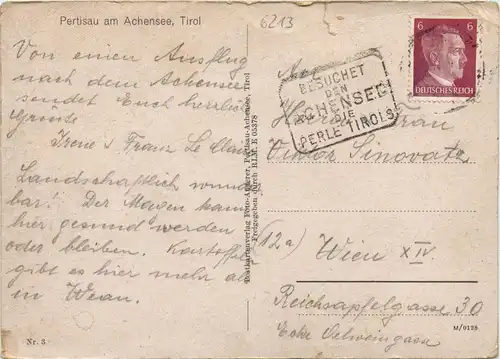 Pertisau am Achensee, Tirol
6213
Von einen Ausflug
nach dem Achensee
sendet Euch herrliche
Grüsse
Irene u Franz
Landschaftlich wunder
bar! Der Magen kann
hier gesund werden
oder bleiben. Kartoffeln
gibt es hier mehr als
in Wean.
Nr. 3
Postkartenverlag Foto-Angerer, Pertisau-Achensee, Tirol
Freigegeben durch RLM. E 05378
6 6
DEUTSCHES REICH
BESUCHET
DEN
ACHENSEE
DIE
PERLE TIROLS
An
Herrn Frau
Viktor Sinovatz
(12a) Wien XIV
Reichsapfelgasse 30
Ecke
M/0128